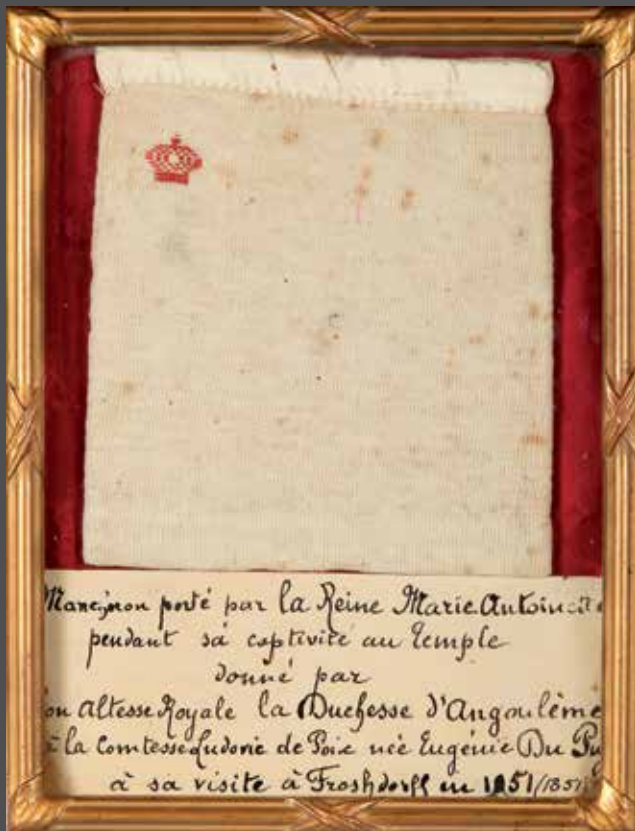 Manchon porté par la Reine Marie Antoinette
pendant sa captivité au Temple
donné par
Son Altesse Royale la Duchesse d'Angoulème
à la Comtesse Ludovic de née Eugénie Du
à sa visite à Froshdorff en 1851/1851